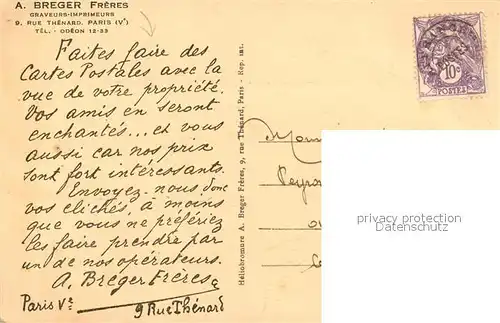 A. BREGER FRÈRES
GRAVEURS-IMPRIMEURS
9, RUE THÉNARD, PARIS (Vᵉ)
TÉL. - ODÉON 12-33
Faites faire des
Cartes Postales avec la
vue de votre propriété.
Vos amis en seront
enchantés... et vous
aussi car nos prix
sont fort intéressants.
Envoyez-nous donc
vos clichés, à moins
que vous ne préfériez
les faire prendre par
un de nos opérateurs.
A. Breger Frères
Paris Vᵉ 9 Rue Thénard
Héliobromure A. Breger Frères, 9, rue Thénard, Paris - Rep. int.
10c
POSTES
privacy protection
Datenschutz